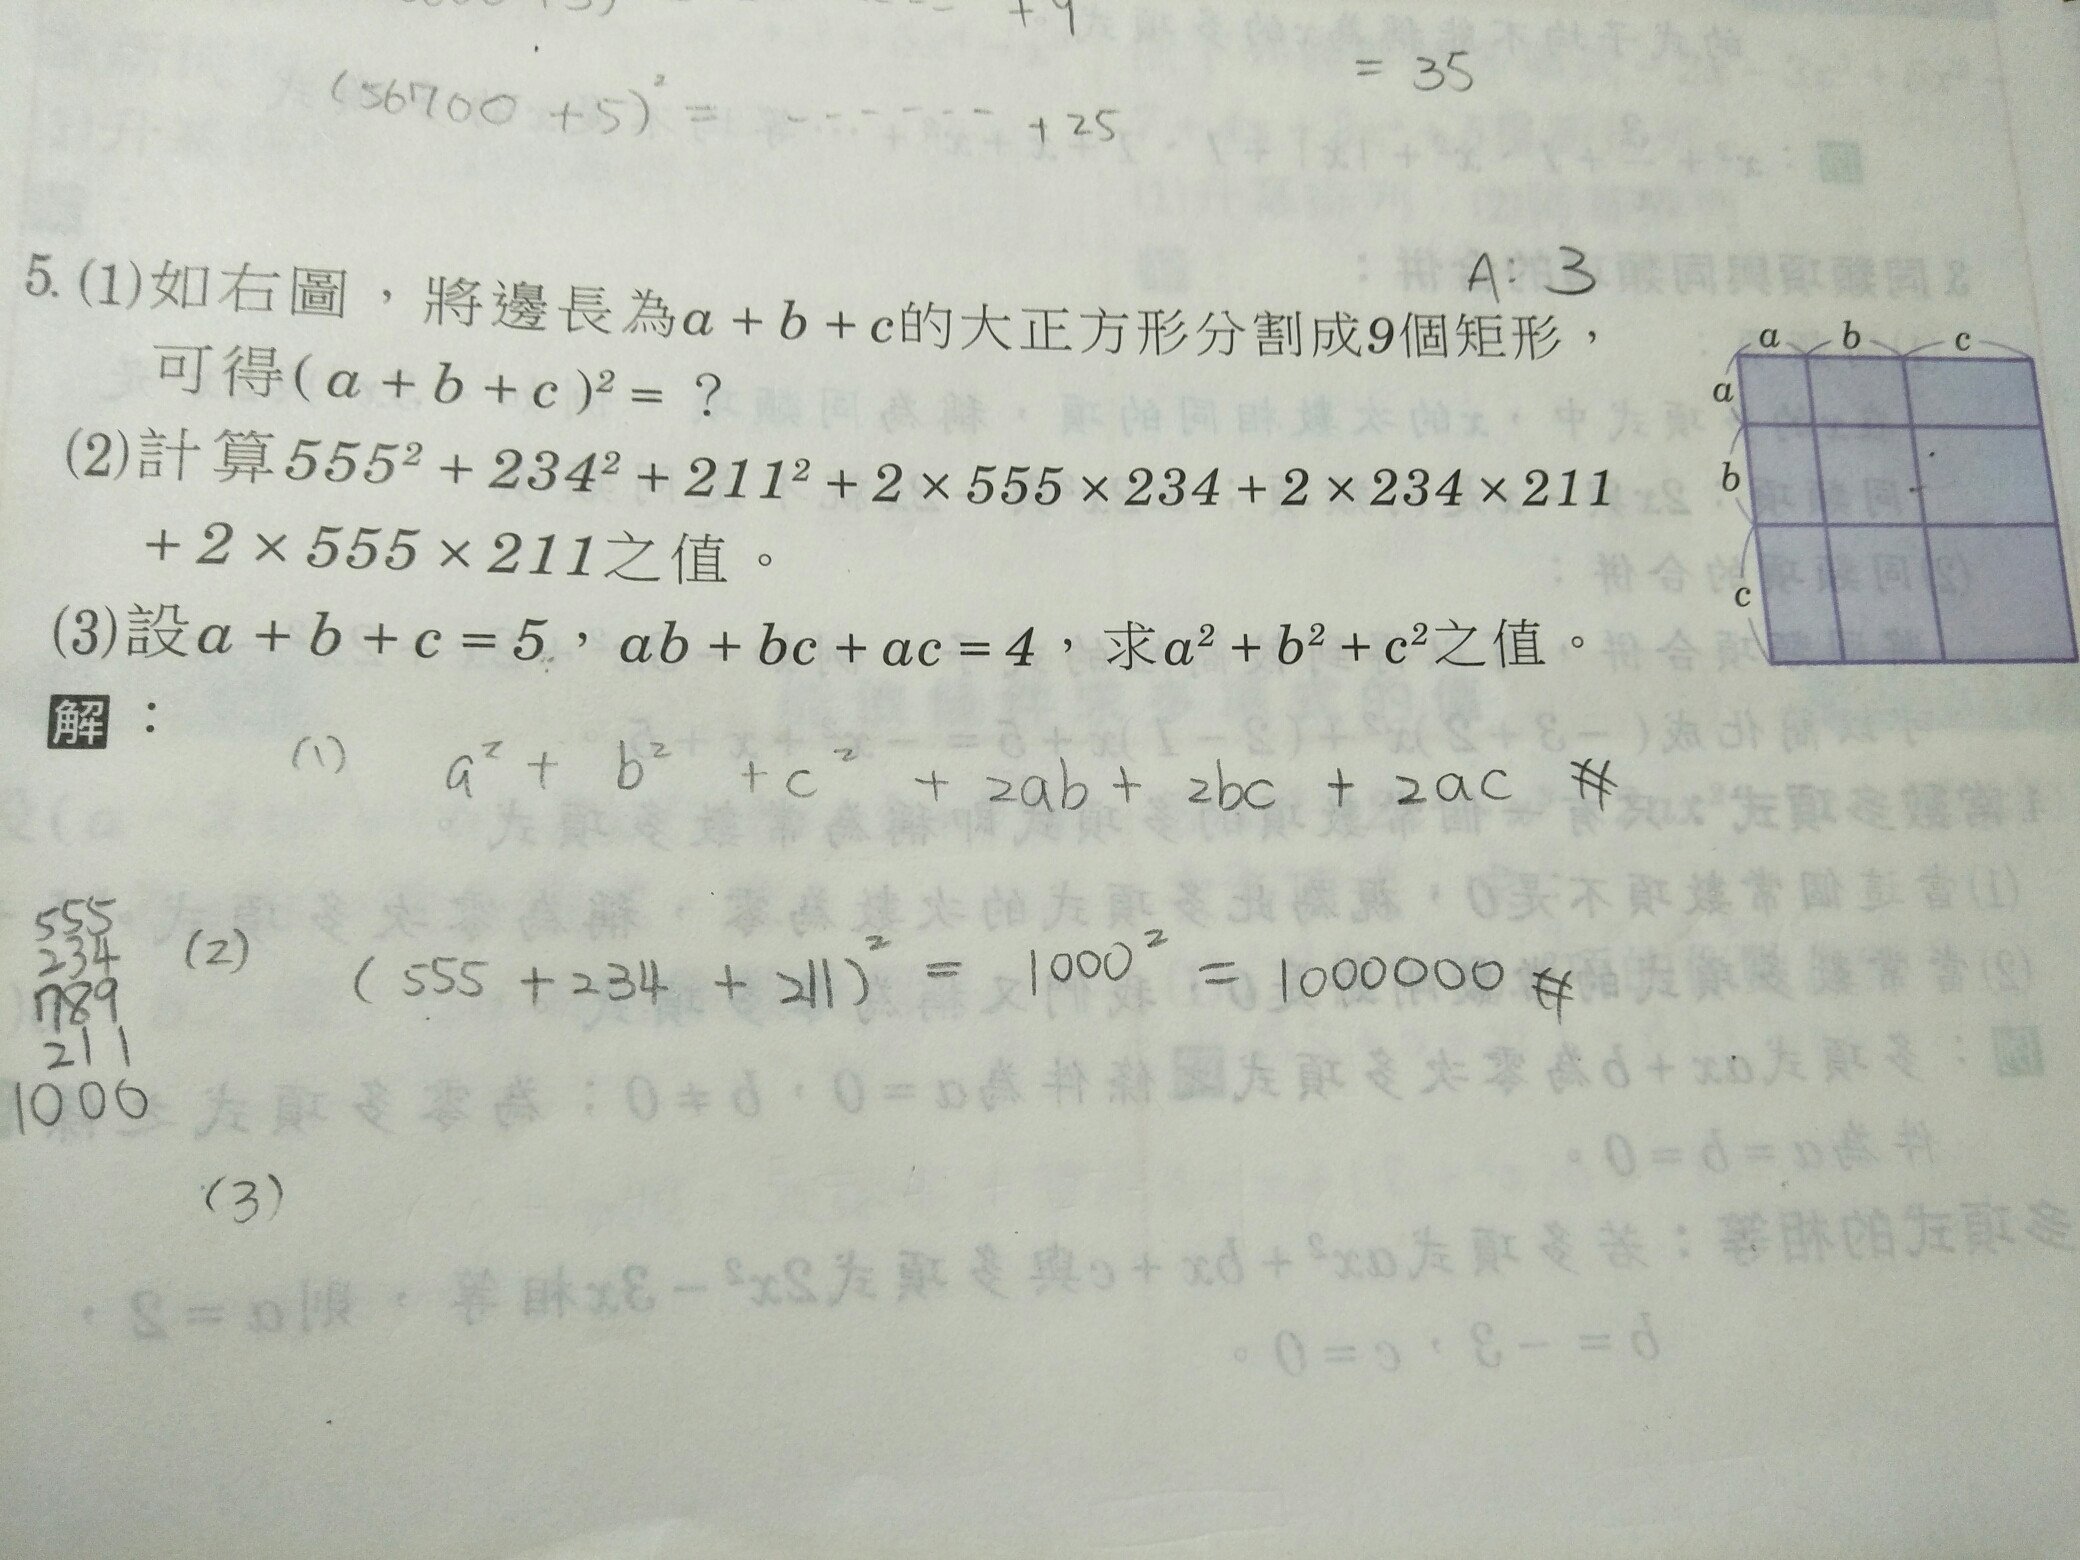 +9
= 35
(56700 + 5)² = ------- + 25
A: 3
5. (1)如右圖,將邊長為a + b + c的大正方形分割成9個矩形,
可得( a + b + c )² = ?
(2)計算555² + 234² + 211² + 2 × 555 × 234 + 2 × 234 × 211
+ 2 × 555 × 211之值。
(3)設a + b + c = 5,ab + bc + ac = 4,求a² + b² + c²之值。
a b c
a
b
c
解:
(1) a² + b² + c² + 2ab + 2bc + 2ac #
555
234
789
211
1000
(2) (555 + 234 + 211)² = 1000² = 1000000 #
(3)